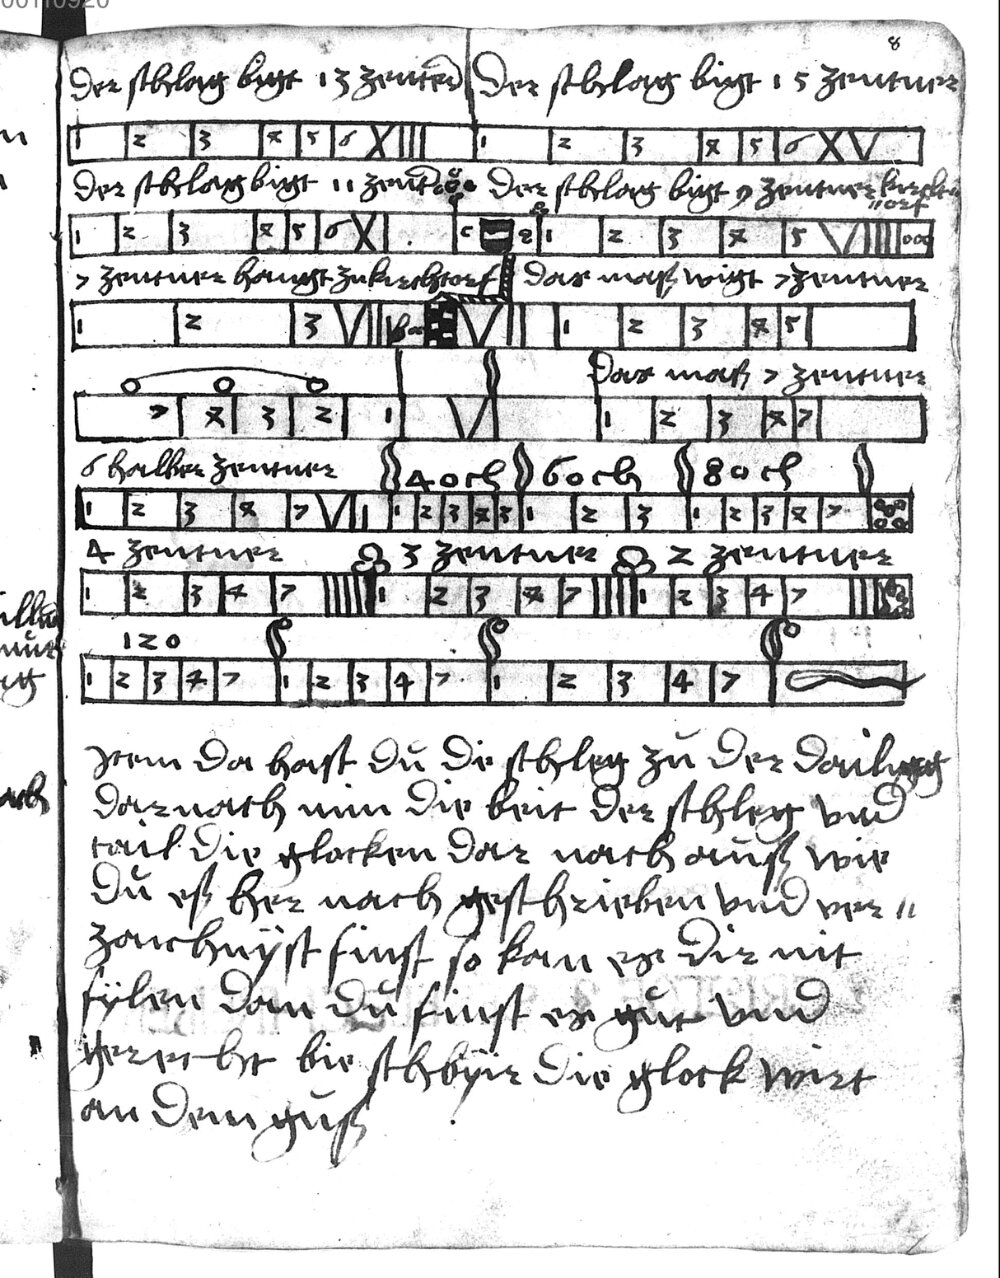 00110920
8
Der schlag bigt 13 zentner Der schlag bigt 15 zentner
1 2 3 4 5 6 X III 1 2 3 4 5 6 X V
Der schlag bigt 11 zent Der schlag bigt 9 zentner kirchd
orf
1 2 3 4 5 6 X I c 2 1 2 3 4 5 V IIII ooo
7 zentner hangt zu kirchtorf das maß wigt 7 zentner
1 2 3 V II V II 1 2 3 4 5
das maß 7 zentner
7 4 3 2 1 V 1 2 3 4 7
6 halber zentner 40 ch 60 ch 80 ch
1 2 3 4 7 V I 1 1 2 3 4 5 1 2 3 1 2 3 4 7
4 zentner 3 zentner 2 zentner
1 2 3 4 7 1 2 3 4 7 1 2 3 4 7
120
1 2 3 4 7 1 2 3 4 7 1 2 3 4 7
Item da hast du die schleg zu der dailung
darnach nim die beit der schleg vnd
tail die glocken dar nach auß wie
du eß her nach geschrieben vnd ver〃
zaichnyst finst so kan es dir nit
fylen dan du finst es gut vnd
gerecht bie schbyir die glock wirt
an dem guß